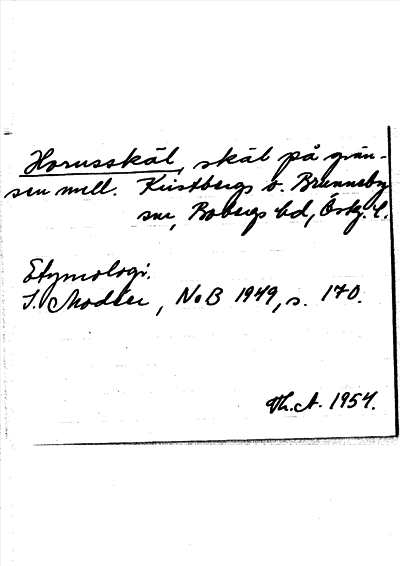 Horusskäl, skäl på grän-
sen mell. Kristbergs o. Brunneby
snr, Bobergs hd, Östg. l.
Etymologi.
I. Modéer, NoB 1949, s. 170.
Th.A. 1954.